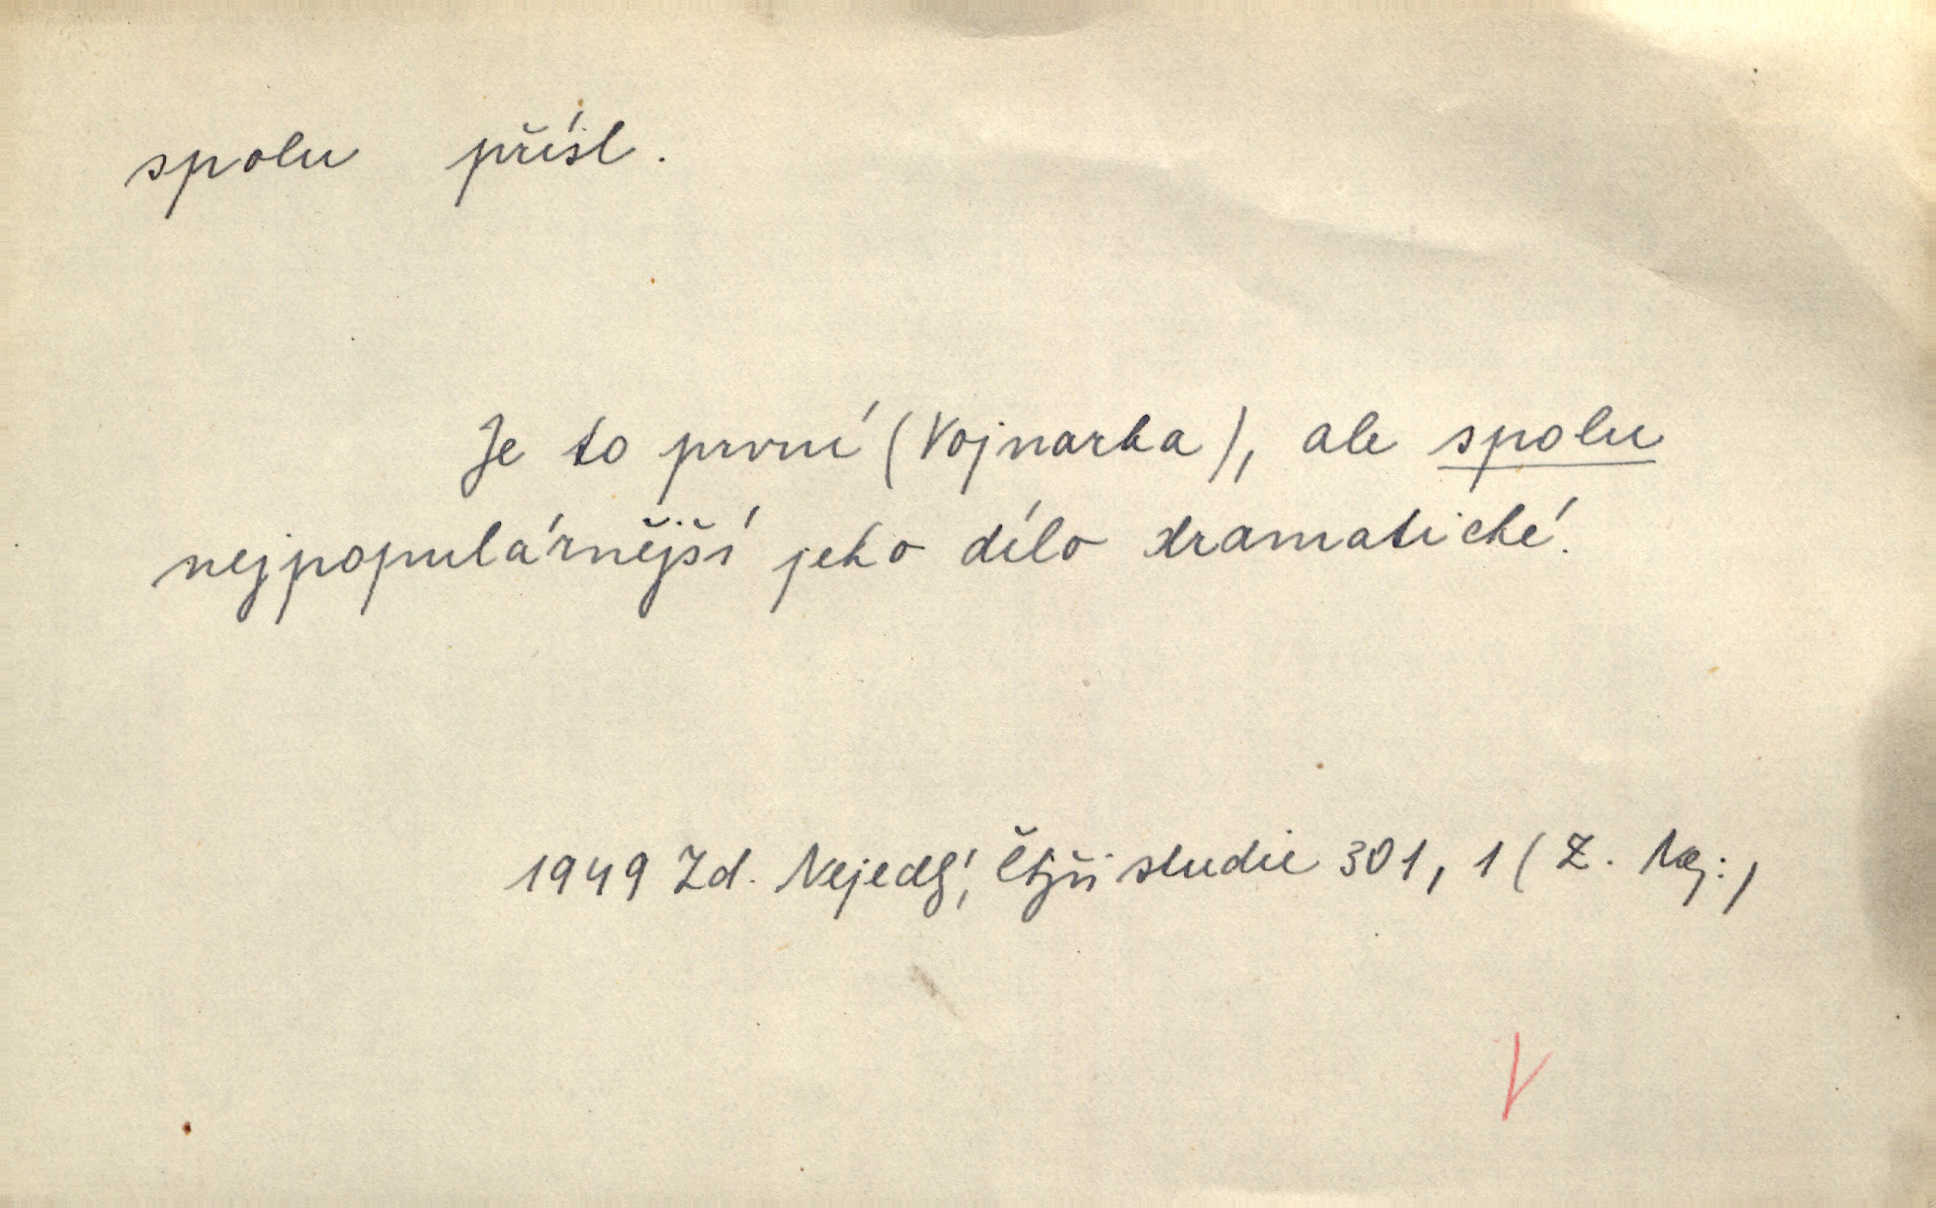 spolu přísl.
Je to první (Vojnarka), ale spolu
nejpopulárnější jeho dílo dramatické.
1949 Zd. Nejedlý, Čtyři studie 301, 1 (Z. Nej.)
V